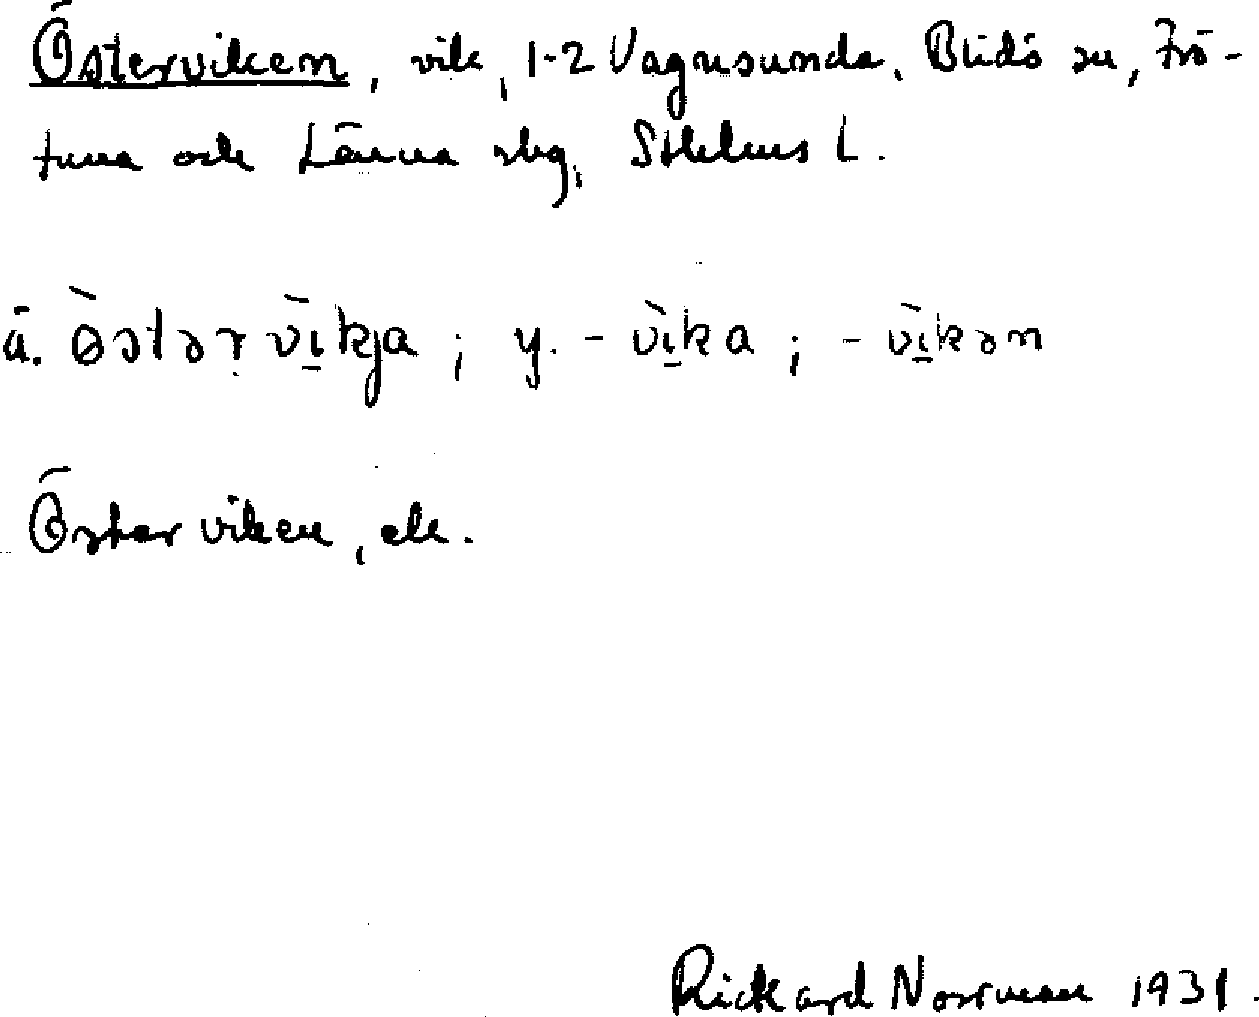 Österviken, vik, 1-2 Vagnsunda, Blidö sn, Frö-
tuna och Länna slg, Sthlms L.
ä. òstər vì̱kja ; y. - vì̱ka ; - vì̱kən
Österviken, ek.
Rickard Norrman 1931.